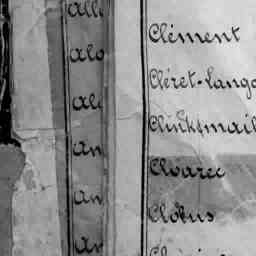 Alo
Al
An
An
An
Clément
Cléret-Lango
Clinksmail
Cloarec
Clobus